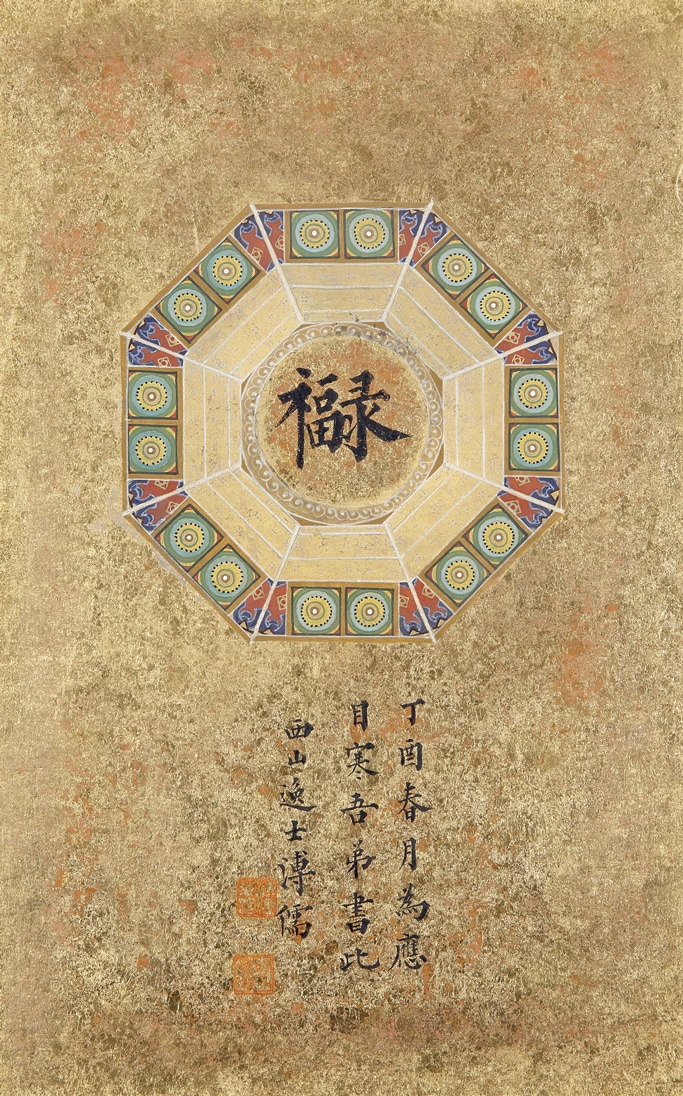 福禄
丁酉春月為應
目寒吾弟書此
西山逸士溥儒